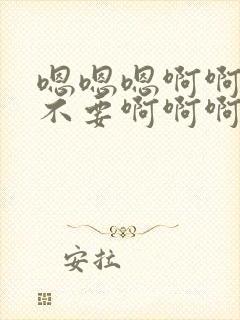 嗯嗯嗯啊啊
不要啊啊啊
安拉